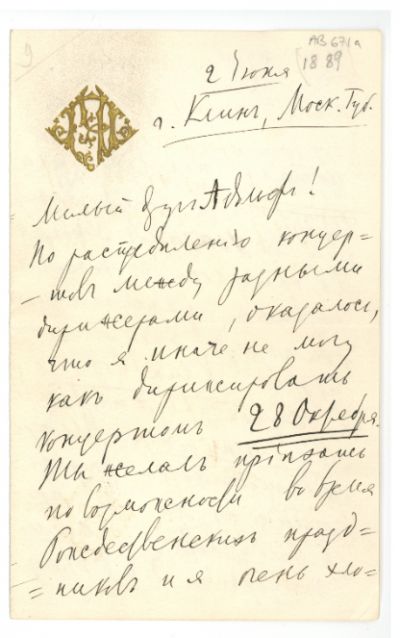 9
AB 671a
(1889)
2 Июня
г. Клинъ, Моск. Губ.
Милый другъ Адольфъ!
По распредѣленію концер=
=товъ между разными
дирижерами, оказалось,
что я иначе не могу
какъ дирижировать
концертомъ 28 Октября.
Ты желалъ пріѣхать
по возможности во время
Рождественскихъ празд=
=никовъ и я очень хло=